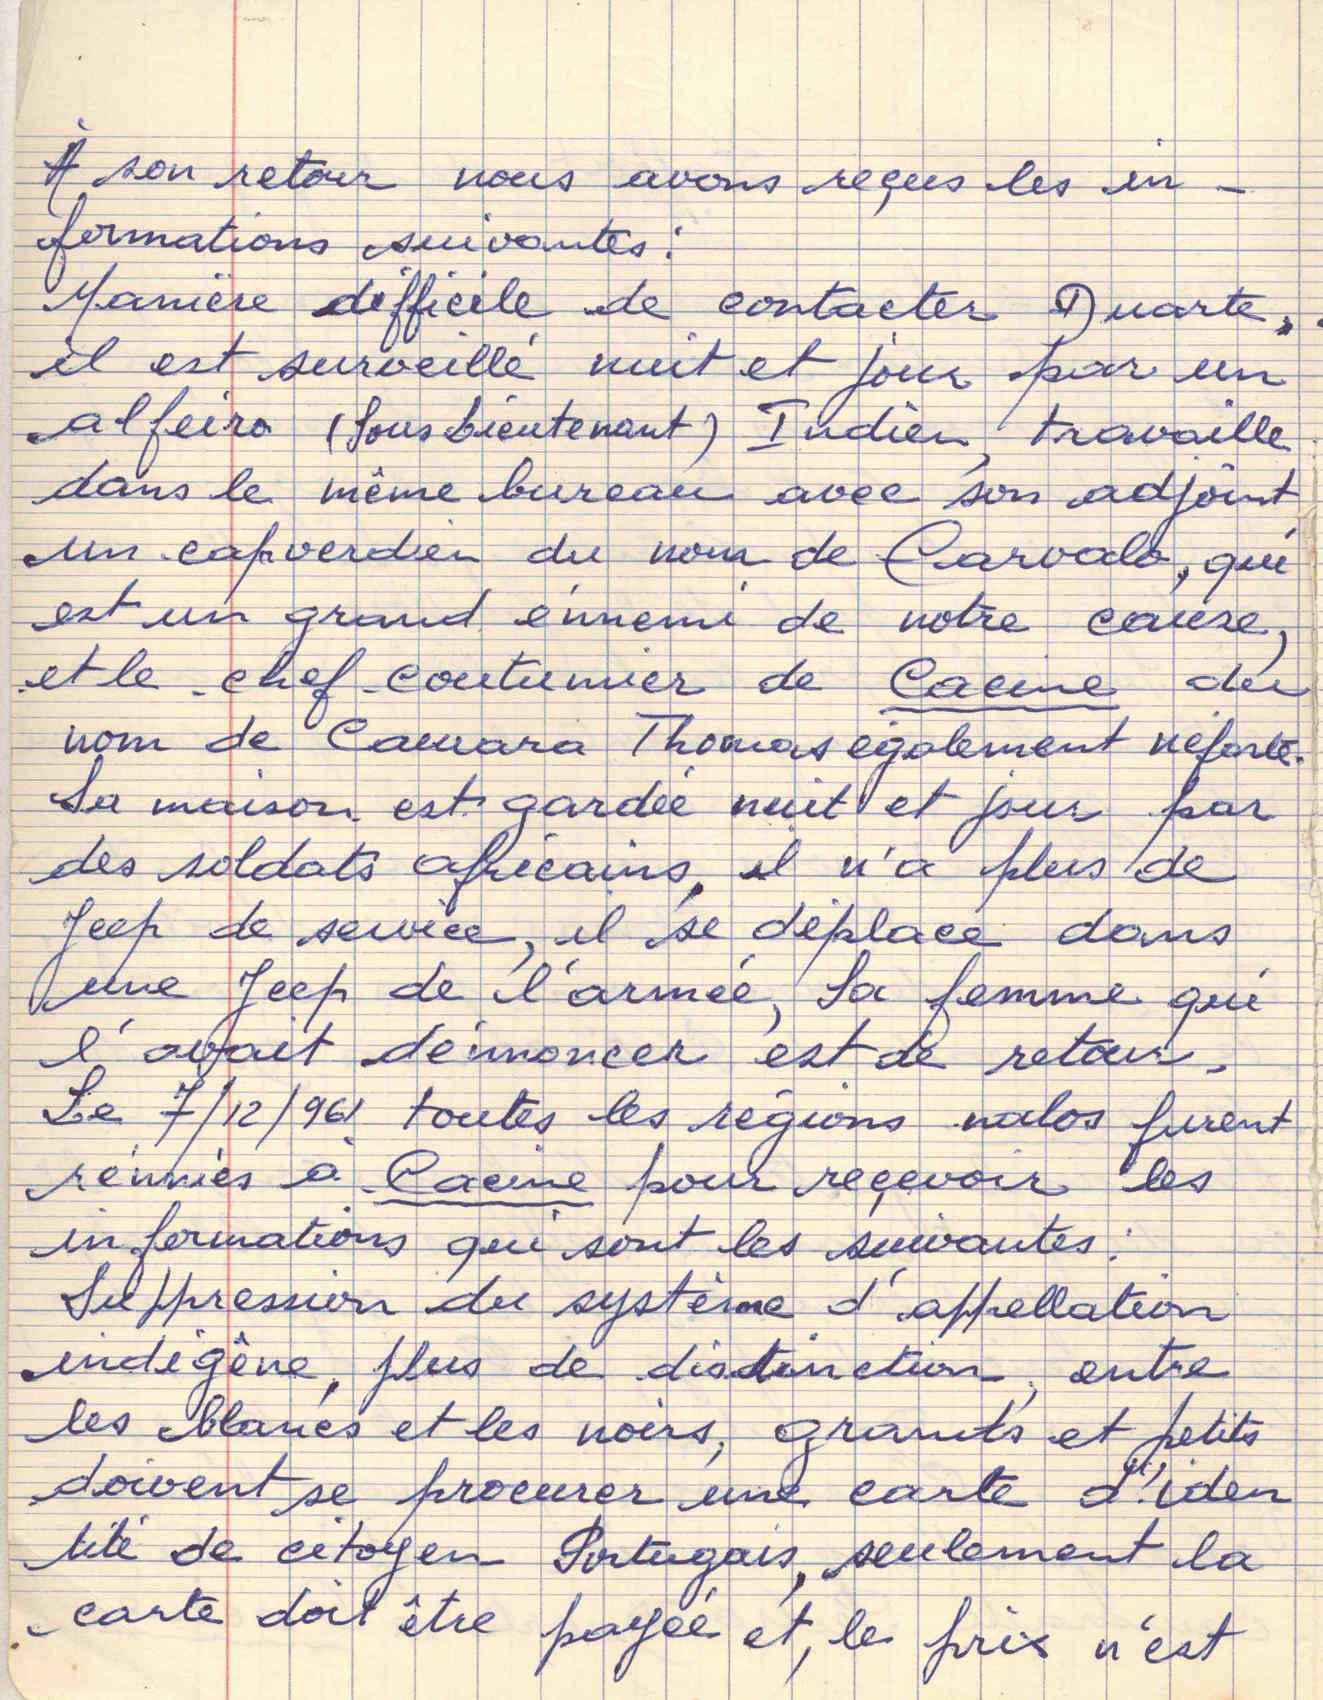 À son retour nous avons reçus les in-
formations suivantes:
Manière difficile de contacter Duarte,
il est surveillé nuit et jour par un
alfeiro (Sous Lieutenant) Indien, travaille
dans le même bureau avec son adjoint
un capverdien du nom de Carvalo, qui
est un grand énnemi de notre cause,
et le chef coutumier de Cacine du
nom de Camara Thomas également néfaste.
Sa maison est gardée nuit et jour par
des soldats africains, il n'a plus de
Jeep de service, il se déplace dans
une Jeep de l'armée, Sa femme qui
l'avait dénnoncer est de retour.
Le 7/12/961 toutes les régions nalos furent
réunies à Cacine pour reçevoir les
informations qui sont les suivantes:
Suppression du système d'appellation
indigêne, plus de distinction, entre
les blancs et les noirs, grands et petits
doivent se procurer une carte d'iden
tité de citoyen Portugais, seulement la
carte doit être payée et, le prix n'est